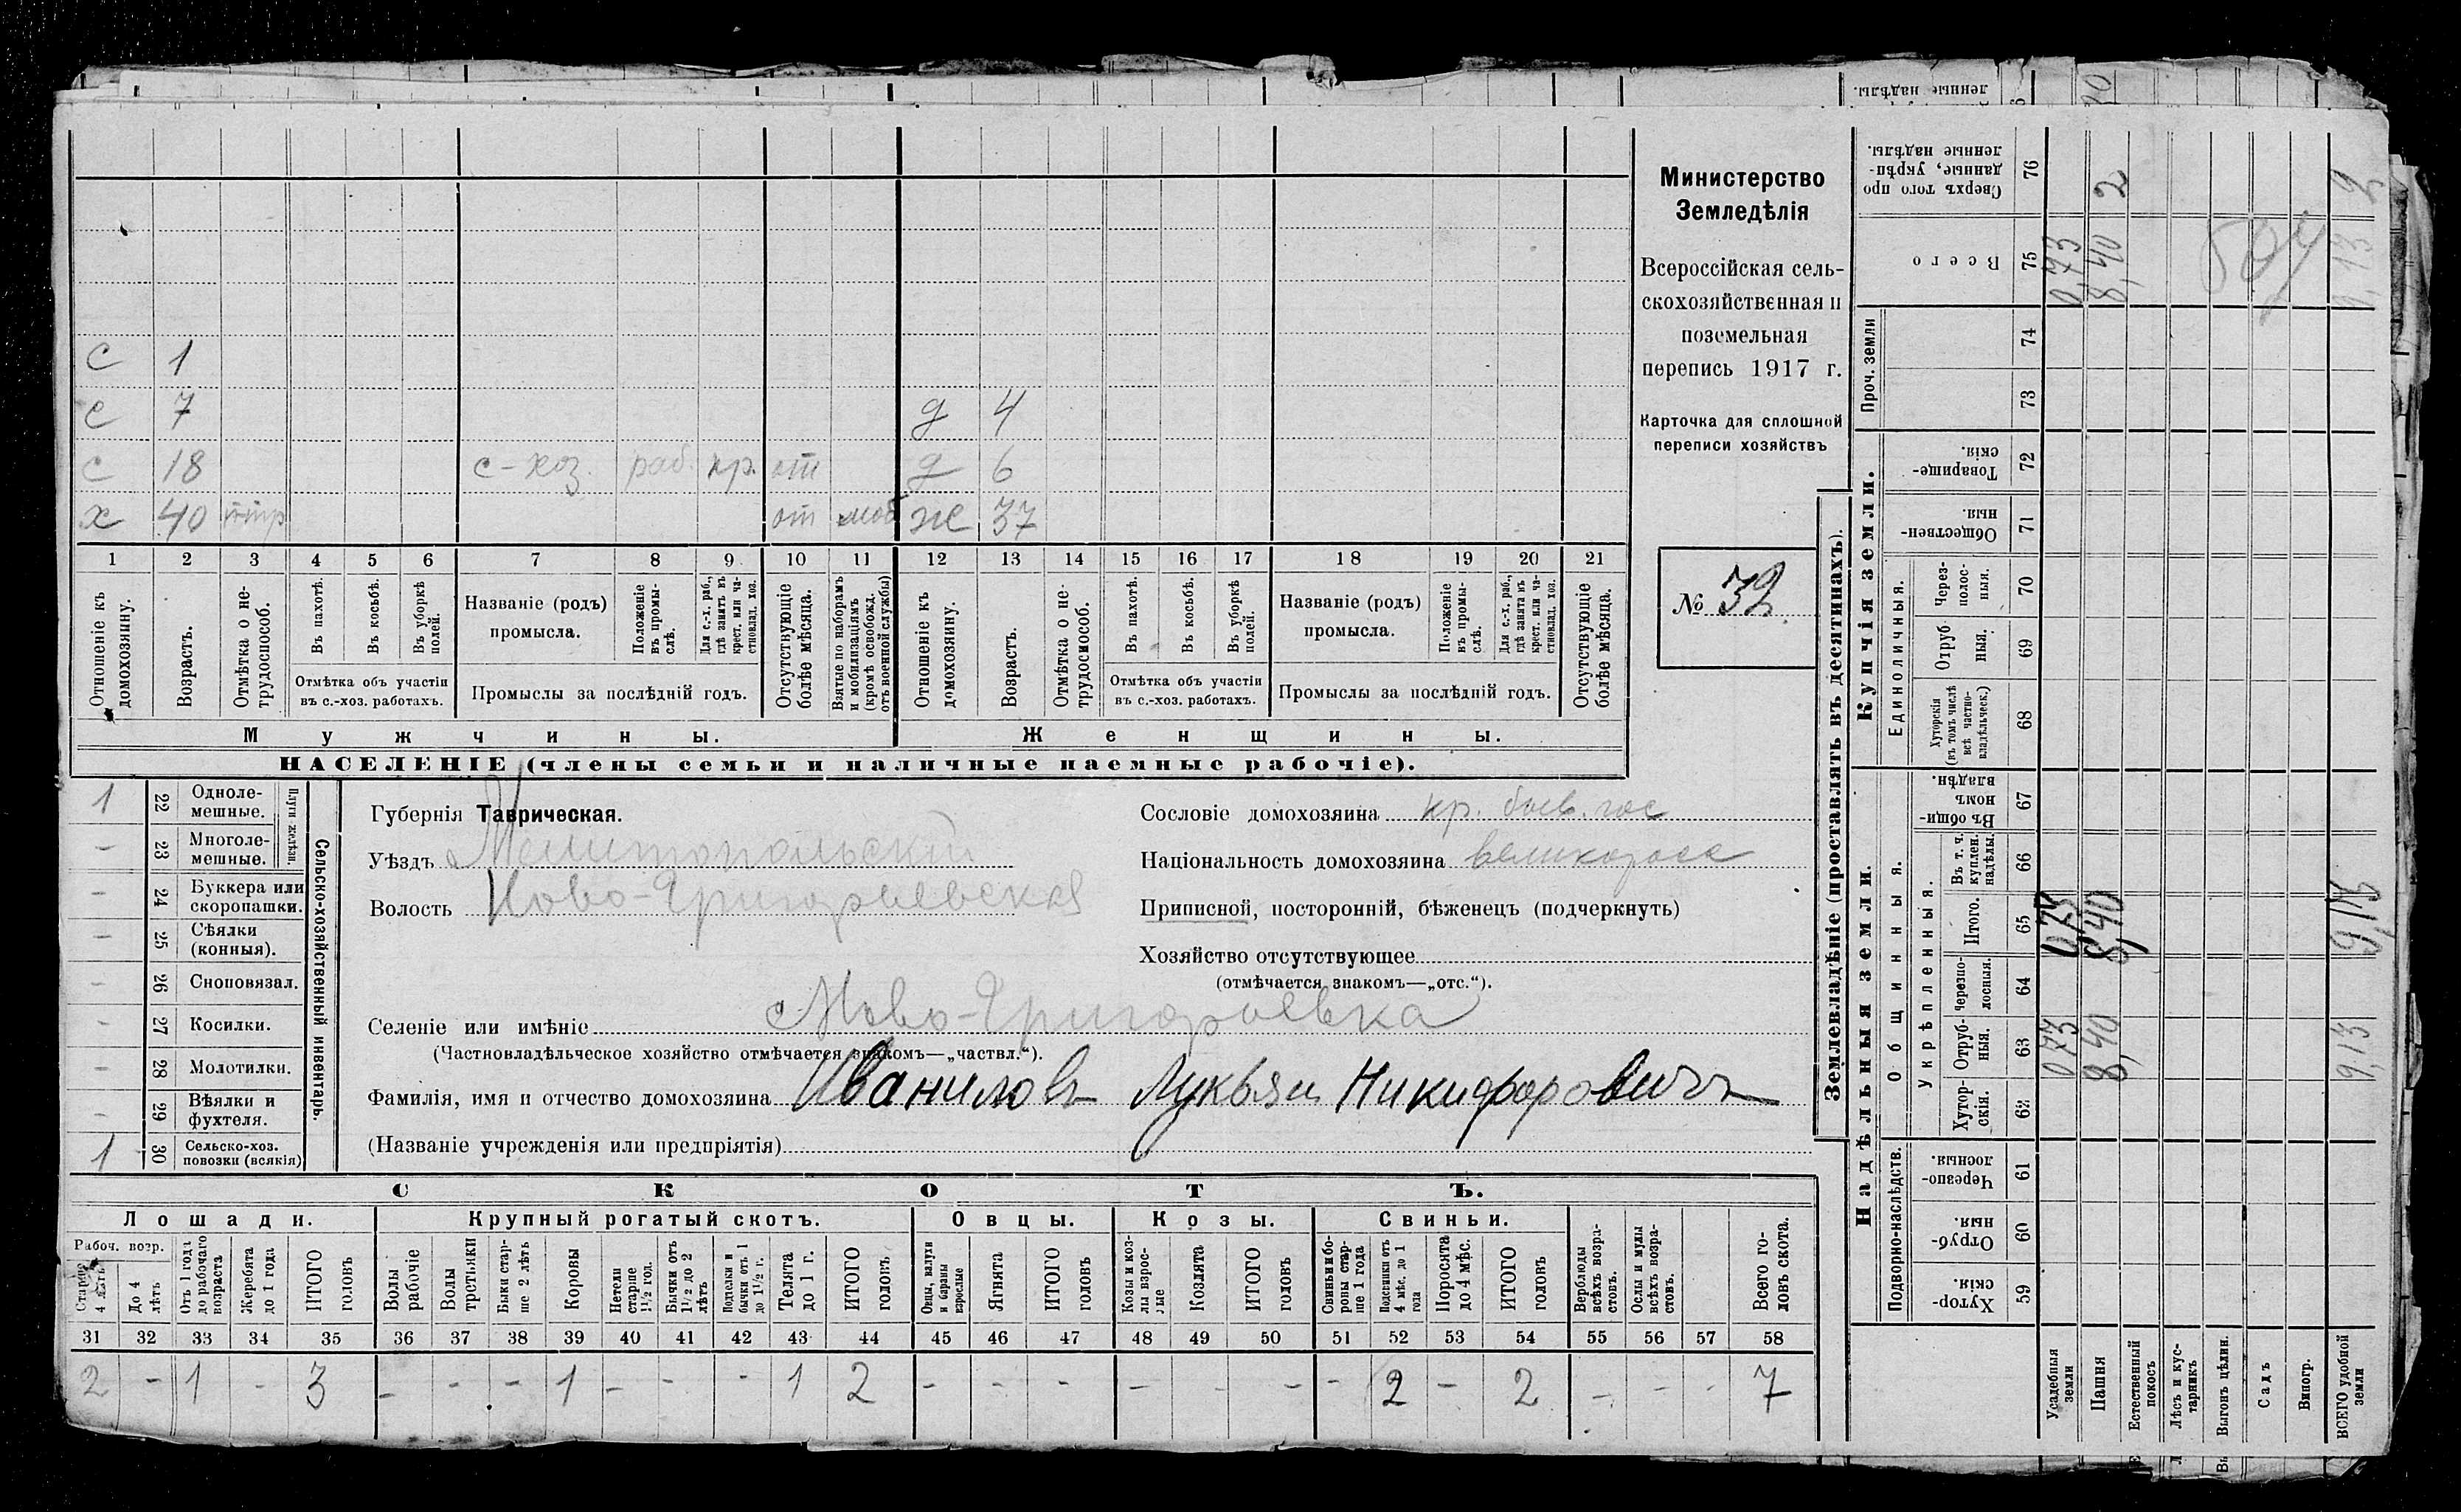 Министерство
Земледѣлія
Всероссійская сель-
скохозяйственная и
поземельная
перепись 1917 г.
Карточка для сплошной
переписи хозяйствъ
№ 32
с 1
с 7 д 4
с 18 с-хоз. раб. кр. от д 6
х 40 от моб ж 37
1 2 3 4 5 6 7 8 9 10 11 12 13 14 15 16 17 18 19 20 21
Отношеніе къ домохозяину.
Возрастъ.
Отмѣтка о не-трудоспособ.
Въ пахотѣ.
Въ косьбѣ.
Въ уборкѣ полей.
Отмѣтка объ участіи въ с.-хоз. работахъ.
Названіе (родъ) промысла.
Положеніе въ промы-слѣ.
Для с.-х. раб., гдѣ занятъ въ крест. или ча-стновлад. хоз.
Промыслы за послѣдній годъ.
Отсутствующіе болѣе мѣсяца.
Взятые по наборамъ и мобилизаціямъ (кромѣ освобожд. отъ военной службы)
Отношеніе къ домохозяину.
Возрастъ.
Отмѣтка о не-трудоспособ.
Въ пахотѣ.
Въ косьбѣ.
Въ уборкѣ полей.
Отмѣтка объ участіи въ с.-хоз. работахъ.
Названіе (родъ) промысла.
Положеніе въ промы-слѣ.
Для с.-х. раб., гдѣ занята въ крест. или ча-стновлад. хоз.
Промыслы за послѣдній годъ.
Отсутствующіе болѣе мѣсяца.
Мужчины. Женщины.
НАСЕЛЕНІЕ (члены семьи и наличные наемные рабочіе).
Сельско-хозяйственный инвентарь.
Плуги желѣзн.
1 22 Одноле-мешные.
– 23 Многоле-мешные.
– 24 Буккера или скоропашки.
– 25 Сѣялки (конныя).
– 26 Сноповязал.
– 27 Косилки.
– 28 Молотилки.
– 29 Вѣялки и фухтеля.
1 30 Сельско-хоз. повозки (всякія)
Губернія Таврическая.
Уѣздъ Мелитопольскій
Волость Ново-Григорьевская
Сословіе домохозяина кр. быв. гос
Національность домохозяина великоросс
Приписной, посторонній, бѣженецъ (подчеркнуть)
Хозяйство отсутствующее
(отмѣчается знакомъ—„отс.“).
Селеніе или имѣніе Ново-Григорьевка
(Частновладѣльческое хозяйство отмѣчается знакомъ—„частвл.“).
Фамилія, имя и отчество домохозяина Иваниловъ Лукьян Никифоровичъ
(Названіе учрежденія или предпріятія)
СКОТЪ.
Лошади. Крупный рогатый скотъ. Овцы. Козы. Свиньи.
Рабоч. возр.
Старше 4 лѣтъ
До 4 лѣтъ
Отъ 1 года до рабочаго возраста
Жеребята до 1 года
ИТОГО головъ
Волы рабочіе
Волы третьяки
Быки стар-ше 2 лѣтъ
Коровы
Нетели старше 1½ год.
Бычки отъ 1½ до 2 лѣтъ
Подтелки и бычки отъ 1 до 1½ г.
Телята до 1 г.
ИТОГО головъ
Овцы, валухи и бараны взрослые
Ягнята
ИТОГО головъ
Козы и коз-лы взрос-лые
Козлята
ИТОГО головъ
Свиньи и бо-ровы стар-ше 1 года
Подсвинки отъ 4 мѣс. до 1 года
Поросята до 4 мѣс.
ИТОГО головъ
Верблюды всѣхъ возра-стовъ.
Ослы и мулы всѣхъ возра-стовъ.
Всего го-ловъ скота.
31 32 33 34 35 36 37 38 39 40 41 42 43 44 45 46 47 48 49 50 51 52 53 54 55 56 57 58
2 – 1 – 3 – – – 1 – – – 1 2 – – – – – – – 2 – 2 – – – 7
Землевладѣніе (проставлять въ десятинахъ).
Сверхъ того про-данные, укрѣп-ленные надѣлы. 76 2 2
Всего 75 0,73 8,40 9,13
504
Проч. земли 74 73
Купчія земли.
Товарище-скія. 72
Обществен-ныя. 71
Единоличныя.
Через-полос-ныя. 70
Отруб-ныя. 69
Хуторскія (въ томъ числѣ всѣ частно-владѣльческ.) 68
Надѣльныя земли.
Общинныя.
Въ общин-номъ владѣн. 67
Укрѣпленныя.
Въ т. ч. куплен. надѣлы. 66
Итого. 65 0,73 8,40 9,13
Черезпо-лосныя. 64
Отруб-ныя. 63 0,73 8,40 9,13
Хутор-скія. 62
Подворно-наслѣдств.
Черезпо-лосныя. 61
Отруб-ныя. 60
Хутор-скія. 59
Усадебныя земли
Пашня
Естественный покосъ
Лѣсъ и кус-тарникъ
Выгонъ цѣлин.
Садъ
Виногр.
ВСЕГО удобной земли